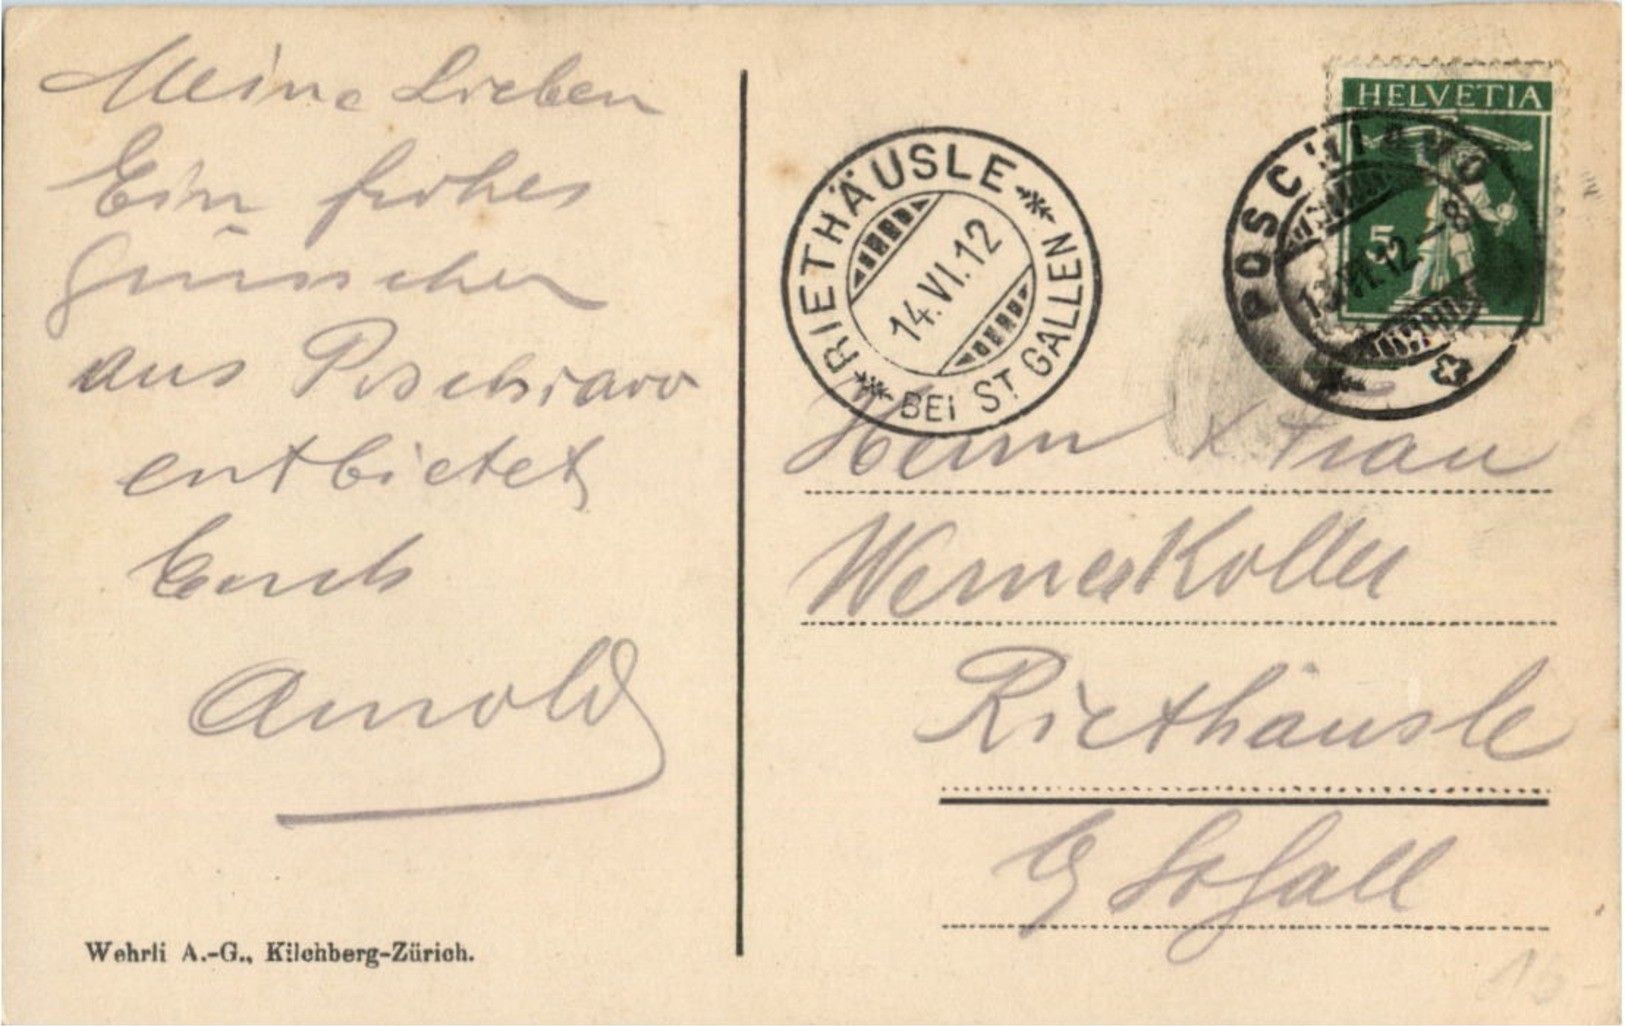 Meine Lieben
Ein frohes
Grüsschen
aus Poschiavo
entbietet
Euch
Arnold
Wehrli A.-G., Kilchberg-Zürich.
RIETHÄUSLE
BEI ST GALLEN
14.VI.12
HELVETIA
5
POSCHIAVO
VI.12.-8
Herrn & Frau
Werner Koller
Riethäusle
St Gall